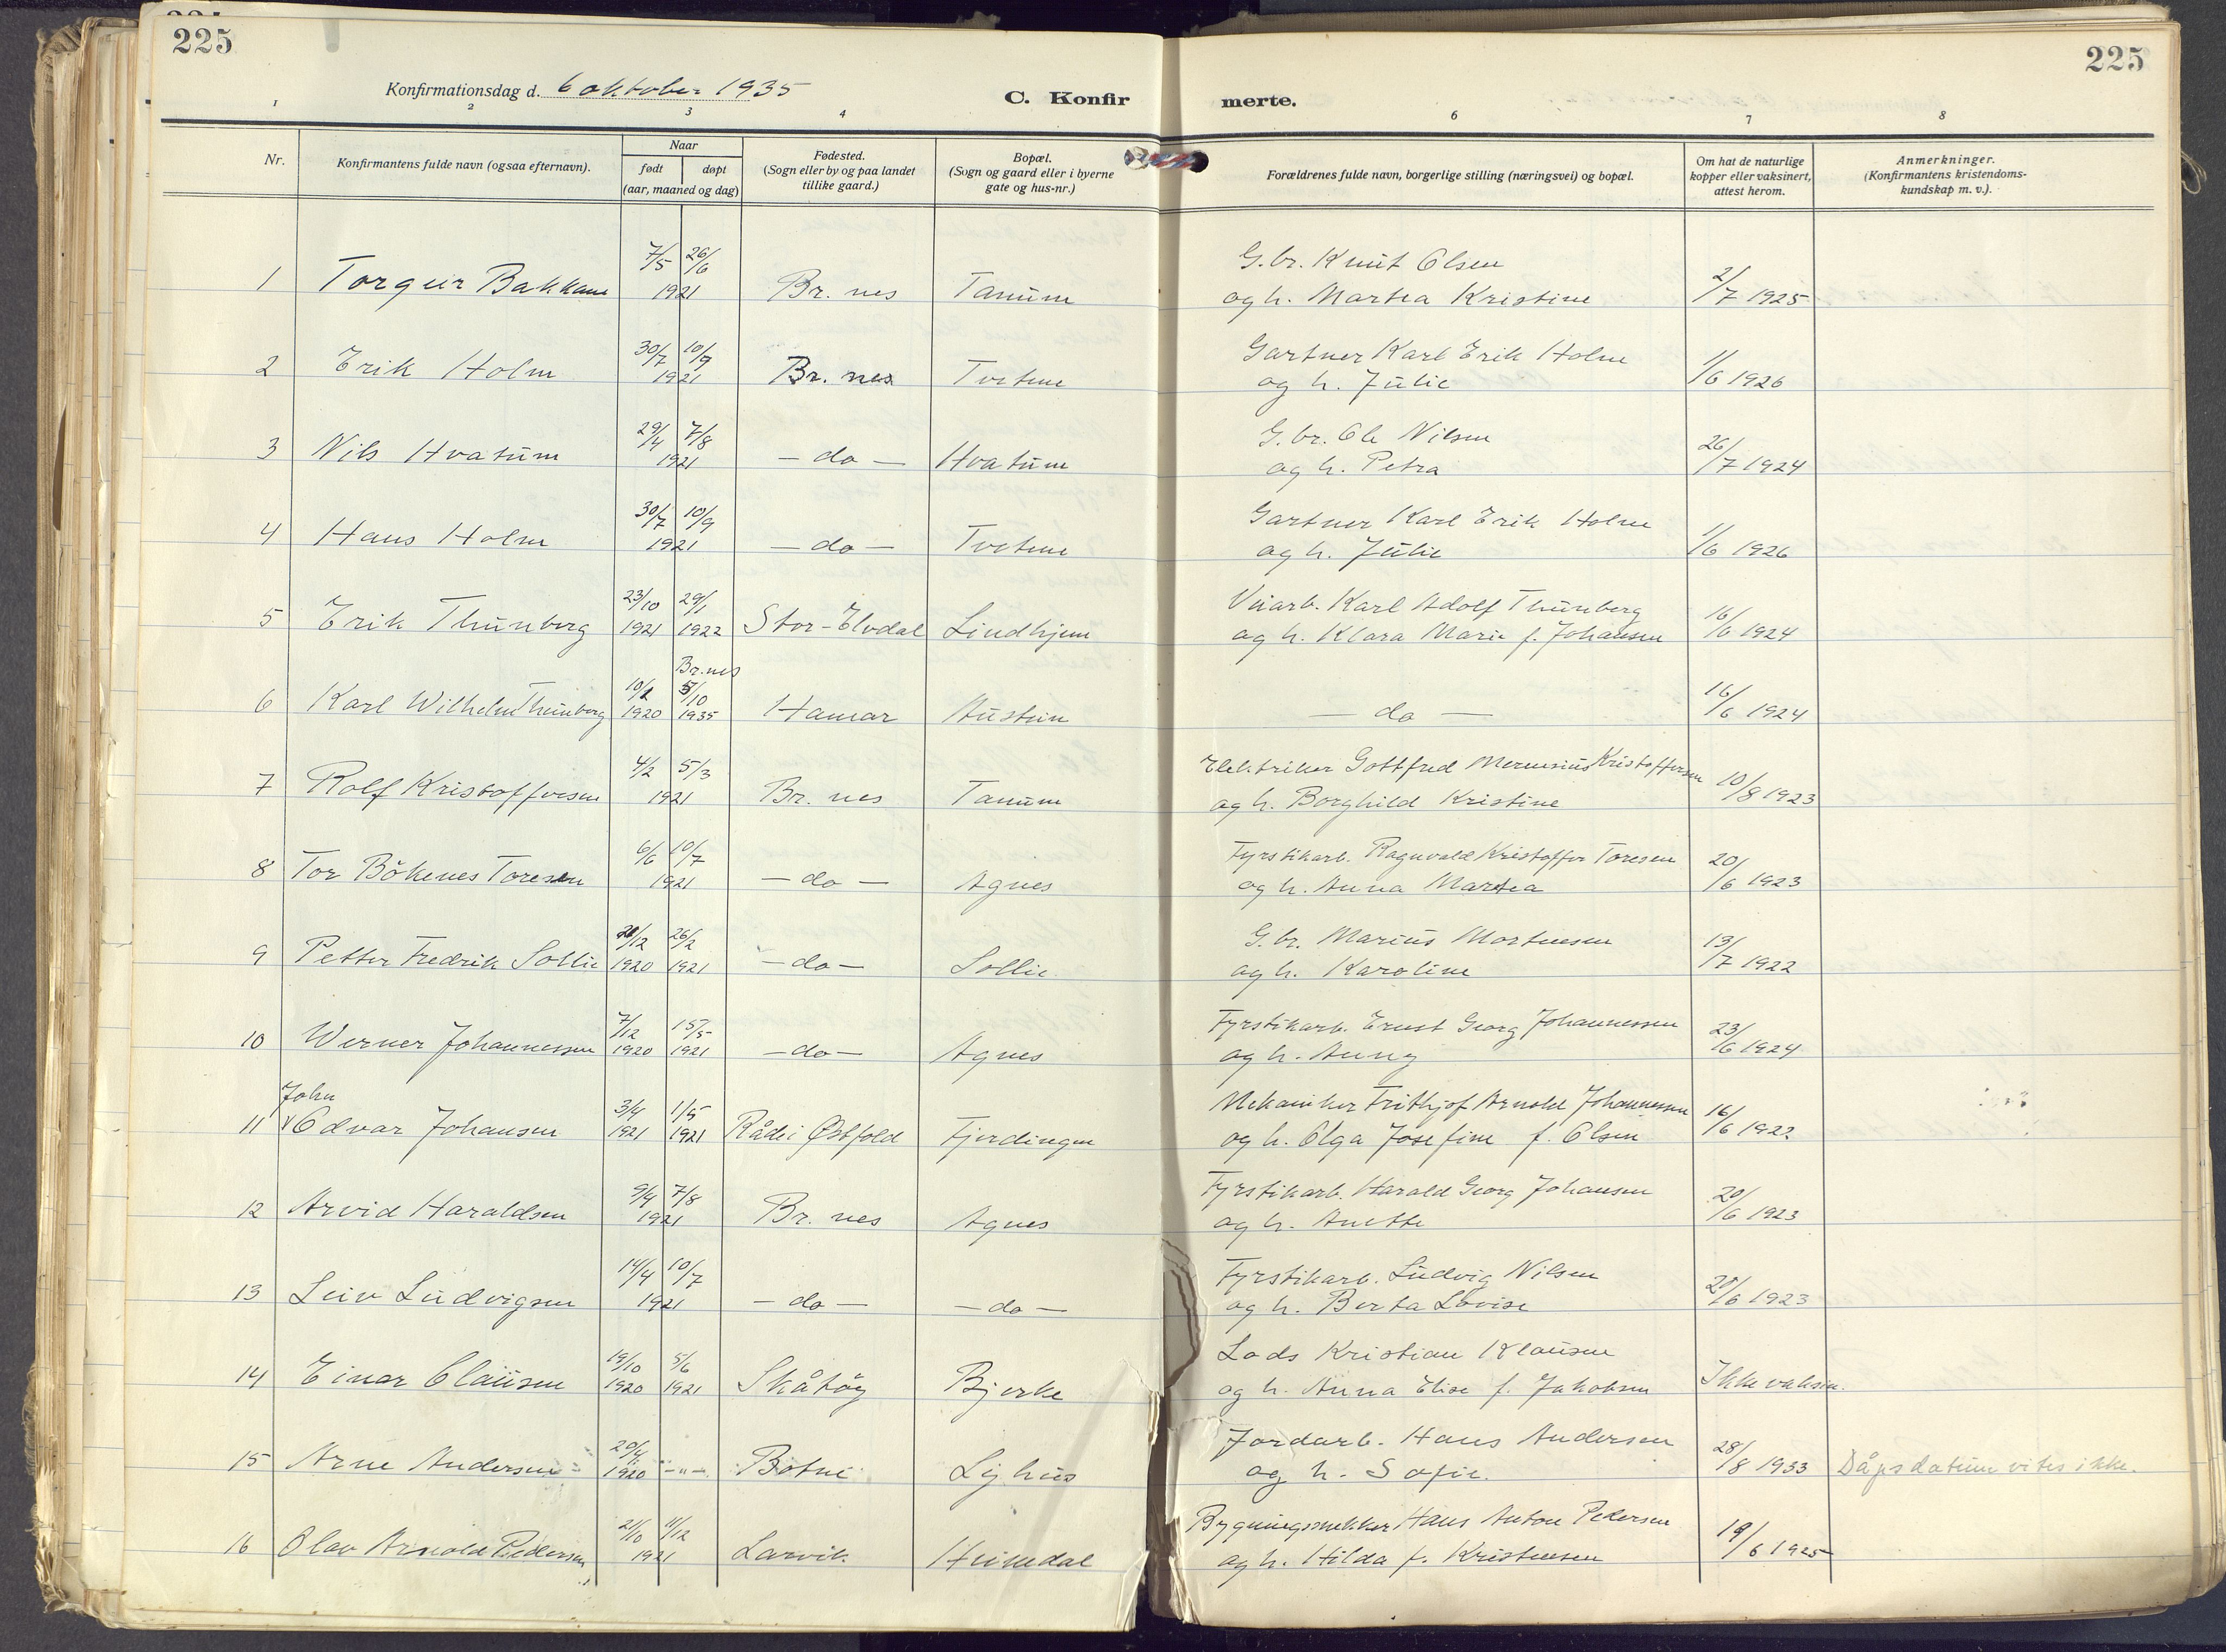 225
225
Konfirmationsdag d. 6 oktober 1935
C. Konfir merte.
1 2 3 4 6 7 8
Nr.
Konfirmantens fulde navn (ogsaa efternavn).
Naar
født døpt
(aar, maaned og dag)
Fødested.
(Sogn eller by og paa landet
tillike gaard.)
Bopæl.
(Sogn og gaard eller i byerne
gate og hus-nr.)
Forældrenes fulde navn, borgerlige stilling (næringsvei) og bopæl.
Om hat de naturlige
kopper eller vaksinert,
attest herom.
Anmerkninger.
(Konfirmantens kristendoms-
kundskap m. v.).
7/5 26/6 G.br. Knut Olsen
1 Torgeir Bakkane 1921 Br.nes Tanum og h. Martea Kristine 2/7 1925
30/7 10/9 Gartner Karl Erik Holm
2 Erik Holm 1921 Br.nes Tvetene og h. Julie 1/6 1926
29/4 7/8 G.br. Ole Nilsen
3 Nils Hvatum 1921 - do - Hvatum og h. Petra 26/7 1924
30/7 10/9 Gartner Karl Erik Holm
4 Hans Holm 1921 - do - Tvetene og h. Julie 1/6 1926
23/10 29/1 Karl Adolf Thunberg
5 Erik Thunberg 1921 1922 Stor-Elvdal Lindhjem og h. Klara Marie f. Johansen 16/6 1924
Br.nes
10/2 5/10
6 Karl Wilhelm Thunberg 1920 1935 Hamar Austein - do - 16/6 1924
4/2 5/3 Elektriker Gottfred Merensius Kristoffersen
7 Rolf Kristoffersen 1921 Br.nes Tanum og h. Borghild Kristine 10/8 1923
6/6 10/7 Fyrstikarb. Ragnvald Kristoffer Toresen
8 Tor Bökenes Toresen 1921 - do - Agnes og h. Anna Martea 20/6 1923
/12 26/2 G.br. Marius Mortensen
9 Petter Fredrik Sollie 1920 1921 - do - Sollie og h. Karoline 13/7 1922
7/12 15/5 Fyrstikarb. Ernst Georg Johannessen
10 Werner Johannessen 1920 1921 - do - Agnes og h. Anny 23/6 1924
John 3/4 1/5 Mekaniker Frithjof Arnold Johannessen
11 √Edvar Johansen 1921 1921 Råde i Østfold Fjerdingen og h. Olga Josefine f. Olsen 16/6 1922
9/4 7/8 Fyrstikarb. Harald Georg Johansen
12 Arvid Haraldsen 1921 Br.nes Agnes og h. Anette 20/6 1923
14/4 10/7 Fyrstikarb. Ludvig Nilsen
13 Leiv Ludvigsen 1921 - do - - do - og h. Berta Lovise 20/6 1923
19/10 5/6 Lods Kristian Klausen
14 Einar Clausen 1920 1921 Skåtöy Bjerke og h. Anna Elise f. Jakobsen Ikke vaksin.
20/4 Jordarb. Hans Andersen
15 Arne Andersen 1920 - " - Botne Lighus og h. Sofie. 28/8 1933 Dåpsdatum vites ikke.
21/10 11/12 Bygningssnekker Hans Anton Pedersen
16 Olav Arnold Pedersen 1921 Larvik Heimdal og h. Hilda f. Kristensen 19/6 1925